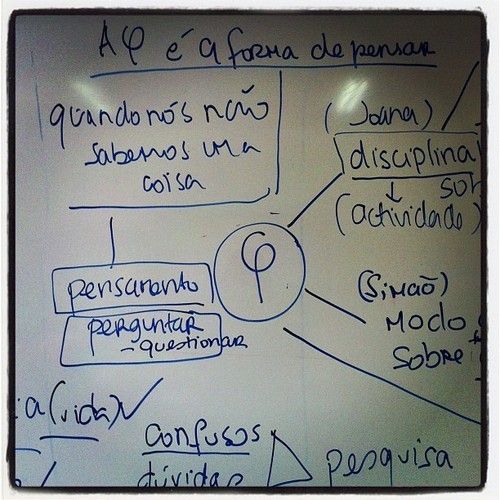 A φ é a forma de pensar
quando nós não
sabemos uma
coisa
(Joana)
disciplina
sob
↓
(actividade)
φ
pensamento
perguntar
- questionar
(Simão)
Modo
sobre
ia (vida) ✓
confusos
dúvidas
pesquisa